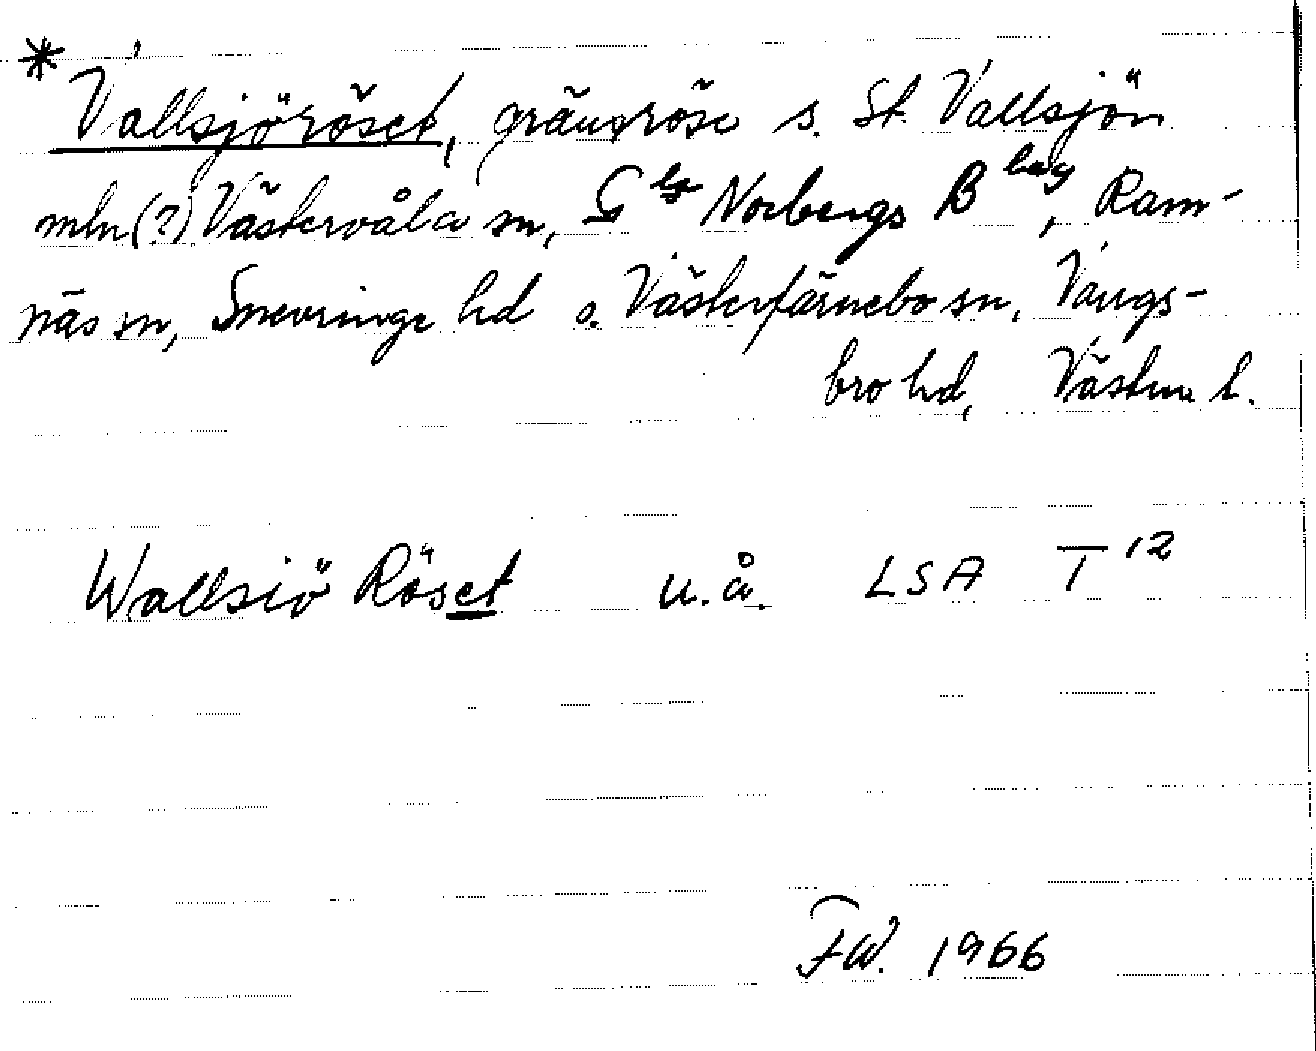 * Vallsjöröset, gränsröse s. St. Vallsjön
mln(?) Västervåla sn, G<sup>la</sup> Norbergs B<sup>lag</sup>, Ram-
näs sn, Snevringe hd o. Västerfärnebo sn, Vangs-
bro hd, Västm l.
Wallsiö Röset u.å. LSA T 12
FW. 1966